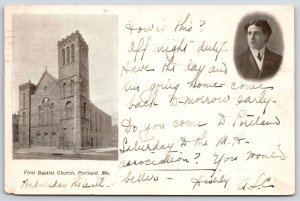 How is this?
Off night duty
Have the day and
am going home come
back tomorrow early
Do you come to Portland
Saturday to the M. H.
association? You would
better — Hastily A.L.C.
First Baptist Church, Portland, Me.
Wednesday the